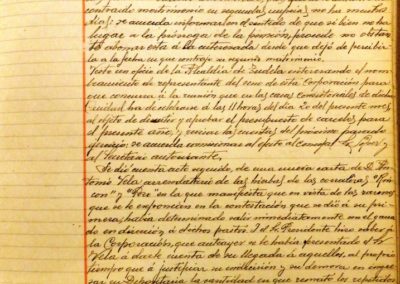 contrado matrimonio en segundas nupcias, no ha muchos
dias; se acuerda informar en el sentido de que si bien no ha
lugar á la prórroga de la pensión, procede no obstante
abonar esta á la interesada desde que dejó de percibir
la á la fecha en que contrajo su segundo matrimonio.
Visto un oficio de la Alcaldía de Tudela interesando el nom
bramiento de representante del seno de esta Corporación para
que concurra á la reunión que en las casas Consistoriales de dicha
ciudad ha de celebrarse á las 11 horas del dia 20 del presente mes,
al objeto de discutir y aprobar el presupuesto de carceles para
el presente año, y revisar las cuentas del próximo pasado
ejercicio: se acuerda comisionar al efecto al Concejal
Secretario autorizante,
Se dió cuenta acto seguido, de una nueva carta de D.
tonio Vela arrendatario de las hierbas de las corralizas
con" y "Pere" en la que manifiesta que en vista de las razones
que se le exponian en la contestación que se dió á su pri
mera, habia determinado salir inmediatamente con el gana
do en dirección á dichos pastos. I el Sr. Presidente hizo saber á
la Corporación, que anteayer se le habia presentado el Sr.
Vela á darle cuenta de su llegada á aquellos, al propio
tiempo que á justificar su y su demora en ingre
sar en Depositaria la cantidad en que remató los repetidos